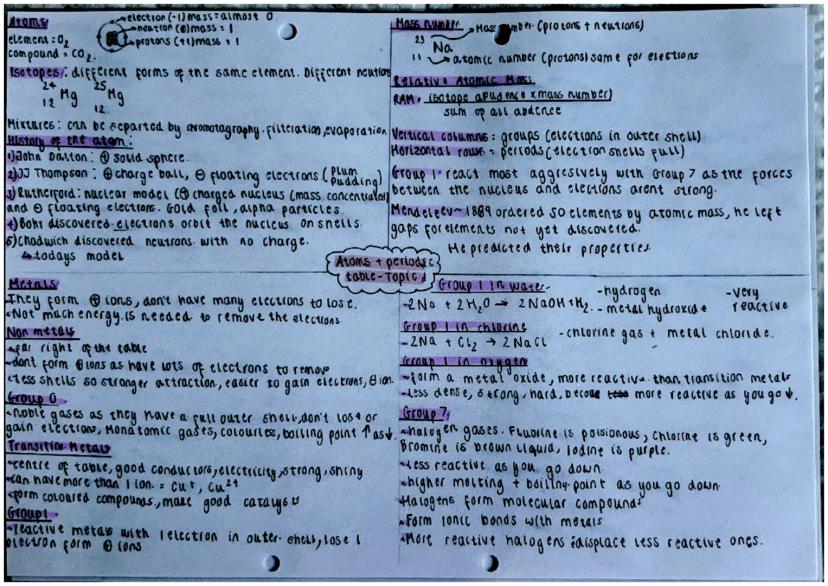 Atoms
electron (-1) mass = almost 0
neutron (0) mass = 1
protons (+1) mass = 1
element = O2
compound = CO2
Isotopes: different forms of the same element. Different neutrons
24 Mg 12
25 Mg 12
Mixtures: can be seperted by chromotagraphy. filteration, evaporation
History of the atom:
1) John Dalton: ⊕ solid sphere.
2) JJ Thompson: ⊕ charge ball, ⊖ floating electrons (Plum Pudding)
3) Rutherford: nuclear model (⊕ charged nucleus (mass concentrated)
and ⊖ floating electrons. Gold foil, alpha particles.
4) Bohr discovered electrons orbit the nucleus on shells.
5) Chadwich discovered neutrons with no charge.
↳ todays model
Mass number
23 Na 11
Mass number (protons + neutrons)
atomic number (protons) same for electrons
Relative Atomic Mass
RAM = isotope abudence x mass number)
sum of all abdence
Vertical columns = groups (electrons in outer shell)
Horizontal rows = periods (electron shells full)
Group 1 react most aggresively with Group 7 as the forces
between the nucleus and electrons arent strong.
Mendeleev ~ 1889 ordered 50 elements by atomic mass, he left
gaps for elements not yet discovered.
He predicted their properties.
Atoms + periodic
table - Topic 1
Metals
They form ⊕ ions, don't have many electrons to lose.
- Not much energy is needed to remove the electrons
Non metals
- far right of the table
- dont form ⊕ ions as have lots of electrons to remove
- less shells so stronger attraction, easier to gain electrons, ⊖ ion.
Group 0
- noble gases as they have a full outer shell, don't lose or
gain electrons, Monatomic gases, colourless, boiling point ↑ as ↓.
Transition Metals
- centre of table, good conductors, electricity, strong, shiny
- can have more than 1 ion. = Cu+, Cu2+
- form coloured compounds, make good catalysts
Group 1
- reactive metals with 1 electron in outer shell, lose 1
electron form ⊕ ions
Group 1 in water
- 2Na + 2H2O → 2NaOH + H2.
- hydrogen
- metal hydroxide
- Very reactive
Group 1 in chlorine
- 2Na + Cl2 → 2NaCl
- chlorine gas + metal chloride.
Group 1 in oxygen
- form a metal oxide, more reactive than transition metals
- less dense, strong, hard, become more reactive as you go ↓.
Group 7
- halogen gases. Fluorine is poisionous, chlorine is green,
Bromine is brown liquid, Iodine is purple.
- less reactive as you go down.
- higher melting + boiling point as you go down
Halogens form molecular compounds
- Form ionic bonds with metals
- More reactive halogens displace less reactive ones.